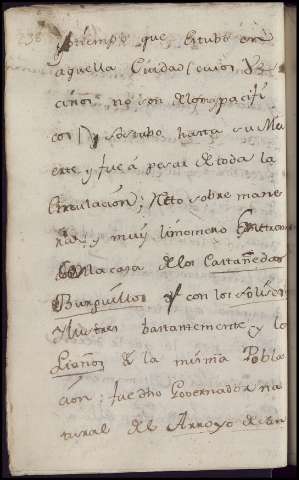 238
tiempo que estubo en
aquella Ciudad (cuios Ve
cinos no son delos mas pacifi
cos) y so stubo hasta su Mu
erte, y fue á pesar de toda la
Circulacion; Neto sobre mane
ra, y muy limosnero
Con la casa de los Castañedas
Burguillos y con los Soliser
Ylustres bastantemente y lo
Liaños de la misma Pobla
cion; fue dho Governador na
tural del Arroyo de